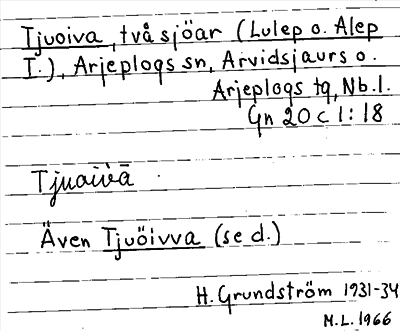 Tjuoiva, två sjöar (Lulep o. Alep
T.), Arjeplogs sn, Arvidsjaurs o.
Arjeplogs tg, Nb.l.
Gn 20 c 1:18
Även Tjuöivva (se d.)
H. Grundström 1931-34
M.L. 1966